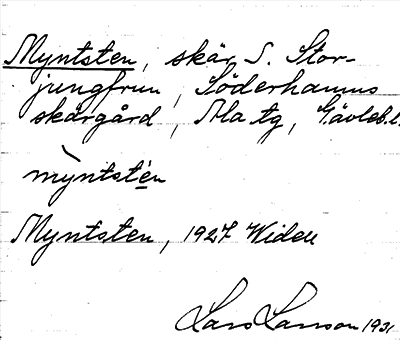 Myntsten, skär S. Stor-
jungfrun, Söderhamns
skärgård, Ala tg, Gävleb.l.
mỳntsté̱n
Myntsten, 1927 Widell
Lars Larsson 1931